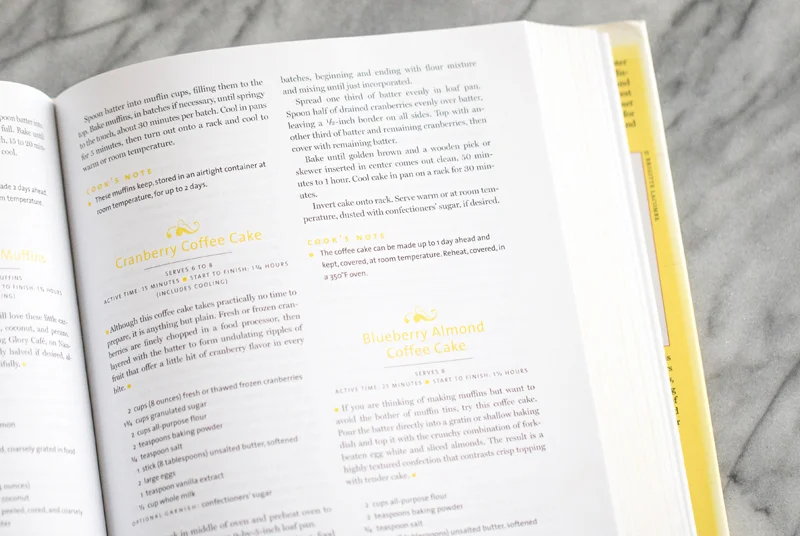 poon batter into
full. Bake until
h, 15 to 20 min.
cool.
ade 2 days ahead.
m temperature.
Muffins
UFFINS
TO FINISH: 1¼ HOURS
ING)
ll love these little
coconut, and pecans,
ng Glory Café, on Nan-
ifully.
mon
d, coarsely grated in food
ounces)
coconut
peeled, cored, and coarsely
Spoon batter into muffin cups, filling them to the
top. Bake muffins, in batches if necessary, until springy
to the touch, about 30 minutes per batch. Cool in pans
for 5 minutes, then turn out onto a rack and cool to
warm or room temperature.
COOK'S NOTE
These muffins keep, stored in an airtight container at
room temperature, for up to 2 days.
Cranberry Coffee Cake
SERVES 6 TO 8
ACTIVE TIME: 15 MINUTES START TO FINISH: 1¾ HOURS
(INCLUDES COOLING)
Although this coffee cake takes practically no time to
prepare, it is anything but plain. Fresh or frozen cran-
berries are finely chopped in a food processor, then
layered with the batter to form undulating ripples of
fruit that offer a little hit of cranberry flavor in every
bite.
2 cups (8 ounces) fresh or thawed frozen cranberries
1¾ cups granulated sugar
2 cups all-purpose flour
2 teaspoons baking powder
¾ teaspoon salt
1 stick (8 tablespoons) unsalted butter, softened
2 large eggs
1 teaspoon vanilla extract
½ cup whole milk
OPTIONAL GARNISH: confectioners' sugar
rack in middle of oven and preheat oven to
5-inch loaf pan.
batches, beginning and ending with flour mixture
and mixing until just incorporated.
Spread one third of batter evenly in loaf pan.
Spoon half of drained cranberries evenly over batter,
leaving a ½-inch border on all sides. Top with an-
other third of batter and remaining cranberries, then
cover with remaining batter.
Bake until golden brown and a wooden pick or
skewer inserted in center comes out clean, 50 min-
utes to 1 hour. Cool cake in pan on a rack for 30 min-
utes.
Invert cake onto rack. Serve warm or at room tem-
perature, dusted with confectioners' sugar, if desired.
COOK'S NOTE
The coffee cake can be made up to 1 day ahead and
kept, covered, at room temperature. Reheat, covered, in
a 350°F oven.
Blueberry Almond
Coffee Cake
SERVES 8
ACTIVE TIME: 25 MINUTES START TO FINISH: 1½ HOURS
If you are thinking of making muffins but want to
avoid the bother of muffin tins, try this coffee cake.
Pour the batter directly into a gratin or shallow baking
dish and top it with the crunchy combination of fork-
beaten egg white and sliced almonds. The result is a
highly textured confection that contrasts crisp topping
with tender cake.
2 cups all-purpose flour
2 teaspoons baking powder
teaspoon salt
unsalted butter, softened
© BRIGITTE LACOMBE